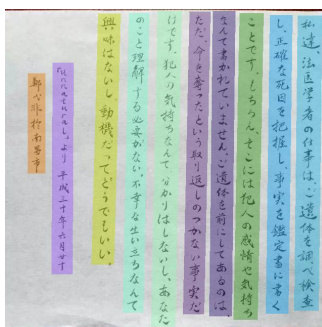 私達、法医学者の仕事は、ご遺体を調べ検査
し、正確な死因を把握し、事実を鑑定書に書く
ことです。もちろん、そこには犯人の感情や気持ち
なんて書かれていません。ご遺体を前にしてあるのは、
ただ、命を奪ったという取り返しのつかない事実だ
けです。犯人の気持ちなんて、分かりはしないし、あなた
のこと理解する必要がない。不幸な生い立ちなんて
興味はないし、動機だってどうでもいい。
『Unnatural』より 平成三十年六月廿十
於南昌市